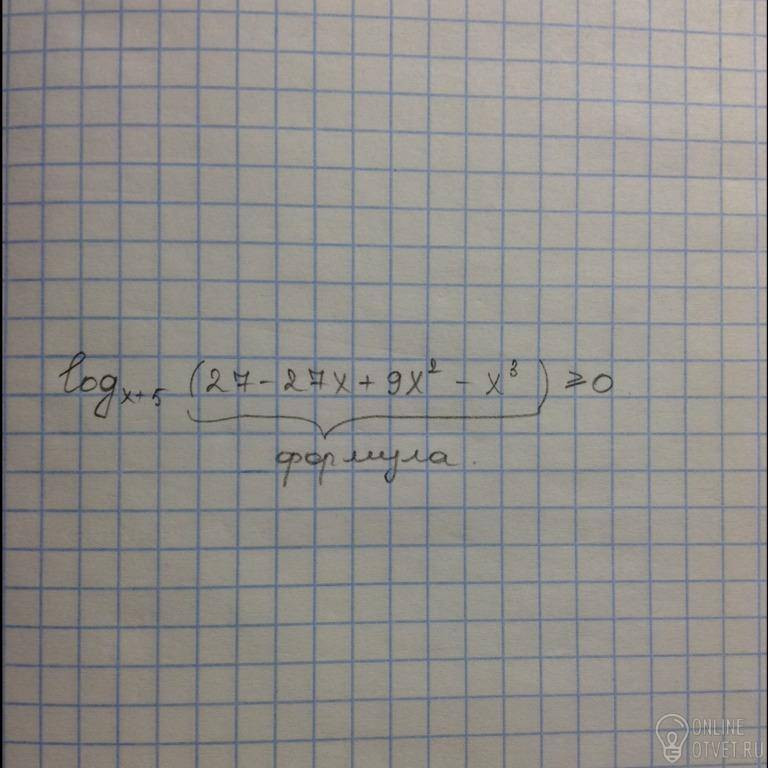 log_{x+5} (27 - 27x + 9x² - x³) ⩾ 0
формула.
ONLINE
OTVET.RU